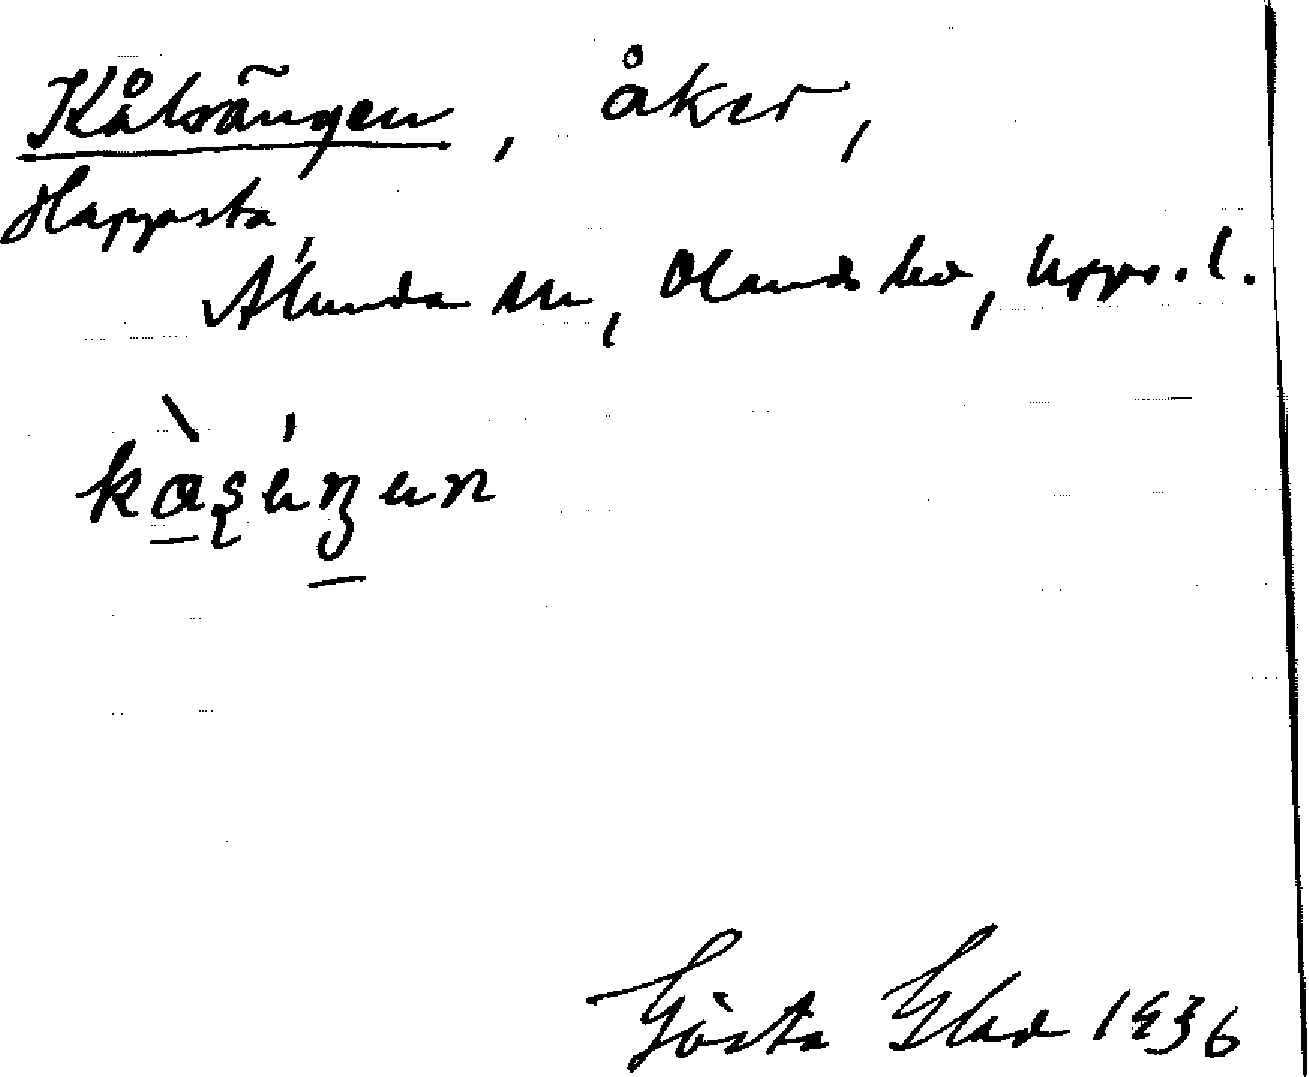 Kålsängen, åker,
Happsta,
Alunda sn, Olands hd, Upps. l.
Gösta Glad 1936